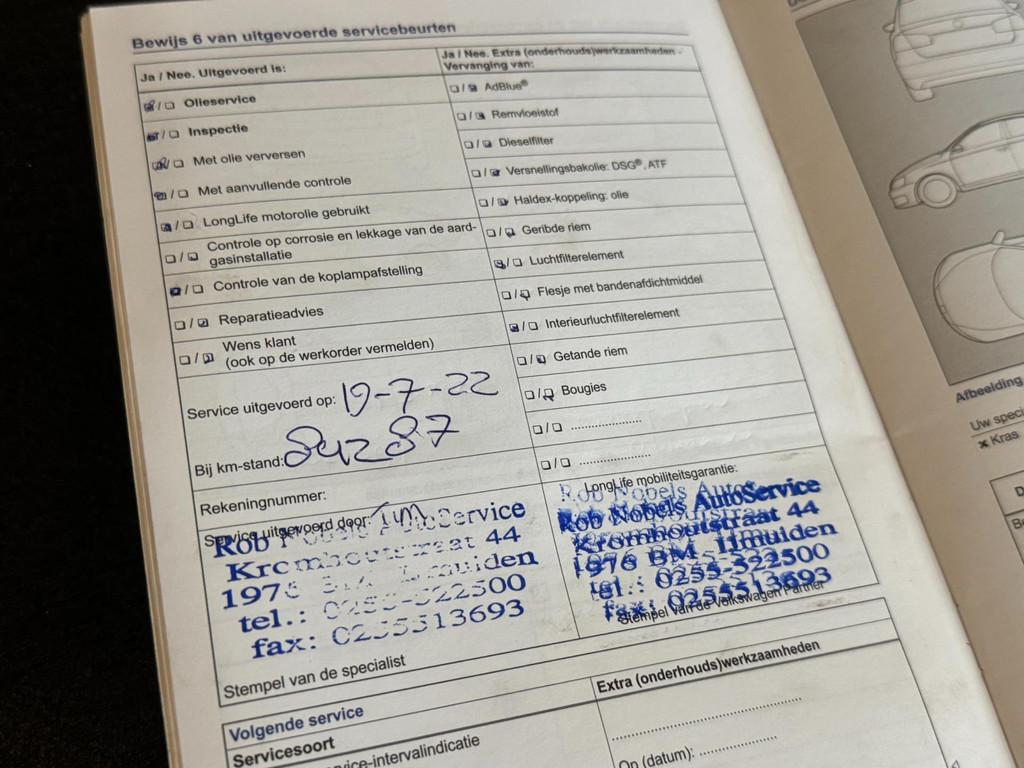 Bewijs 6 van uitgevoerde servicebeurten
Ja / Nee. Uitgevoerd is:
Olieservice
Inspectie
Met olie verversen
Met aanvullende controle
LongLife motorolie gebruikt
Controle op corrosie en lekkage van de aard-
gasinstallatie
Controle van de koplampafstelling
Reparatieadvies
Wens klant
(ook op de werkorder vermelden)
Service uitgevoerd op: 19-7-22
Bij km-stand: 84287
Rekeningnummer:
Service uitgevoerd door: Tim
Rob Nobels AutoService
Kromhoutstraat 44
1976 BM IJmuiden
tel.: 0255-522500
fax: 0255513693
Stempel van de specialist
Ja / Nee. Extra (onderhouds)werkzaamheden -
Vervanging van:
AdBlue®
Remvloeistof
Dieselfilter
Versnellingsbakolie: DSG®, ATF
Haldex-koppeling: olie
Geribde riem
Luchtfilterelement
Flesje met bandenafdichtmiddel
Interieurluchtfilterelement
Getande riem
Bougies
LongLife mobiliteitsgarantie:
Rob Nobels AutoService
Kromhoutstraat 44
1976 BM IJmuiden
tel.: 0255-522500
fax: 0255513693
Stempel van de Volkswagen Partner
Volgende service
Servicesoort
vice-intervalindicatie
Extra (onderhouds)werkzaamheden
Op (datum):
Afbeelding
Uw speci
× Kras
D
Be